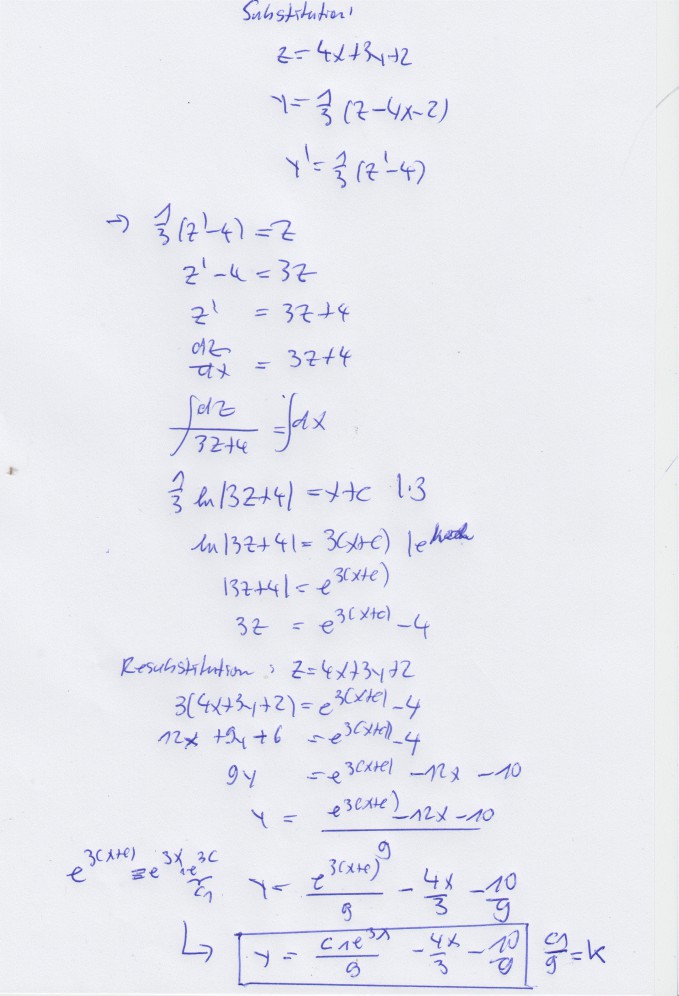 Substitution:
z = 4x+3y+2
y = 1/3 (z-4x-2)
y' = 1/3 (z'-4)
→ 1/3 (z'-4) = z
z' - 4 = 3z
z' = 3z+4
dz/dx = 3z+4
∫ dz/(3z+4) = ∫dx
1/3 ln|3z+4| = x+c |·3
ln|3z+4| = 3(x+c) |e hoch
|3z+4| = e^3(x+c)
3z = e^3(x+c) - 4
Resubstitution: z = 4x+3y+2
3(4x+3y+2) = e^3(x+c) - 4
12x + 9y + 6 = e^3(x+c) - 4
9y = e^3(x+c) - 12x - 10
y = (e^3(x+c) - 12x - 10)/9
e^3(x+c) = e^3x · e^3c
c1
y = e^3(x+c)/9 - 4x/3 - 10/9
↳ y = c1e^3x/9 - 4x/3 - 10/9 c1/9 = k